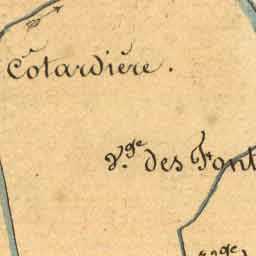 Cotardière.
V.ge des Font